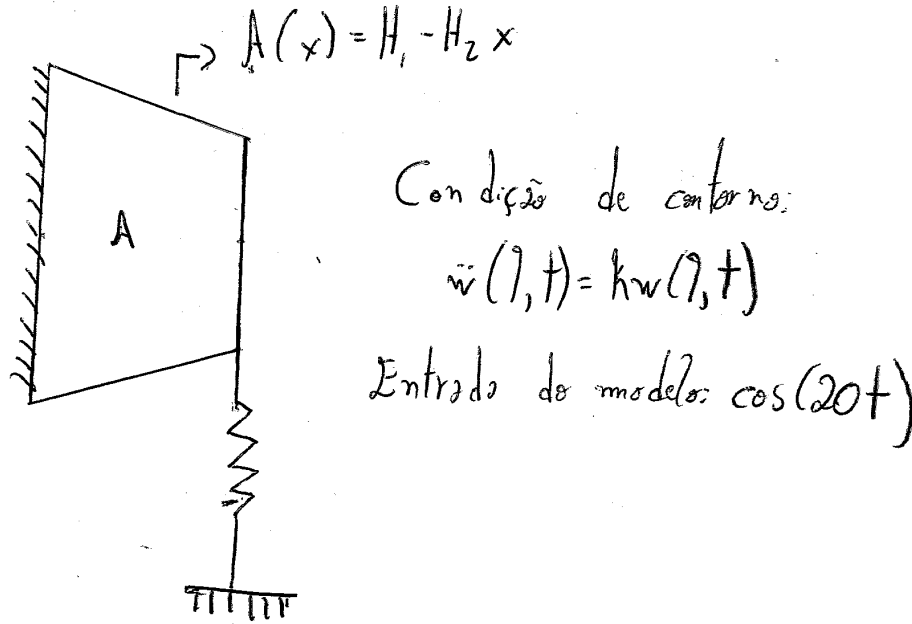 A(x) = H₁ - H₂ x
A
Condição de contorno:
ẅ(l,t) = kw(l,t)
Entrada do modelo: cos(20t)